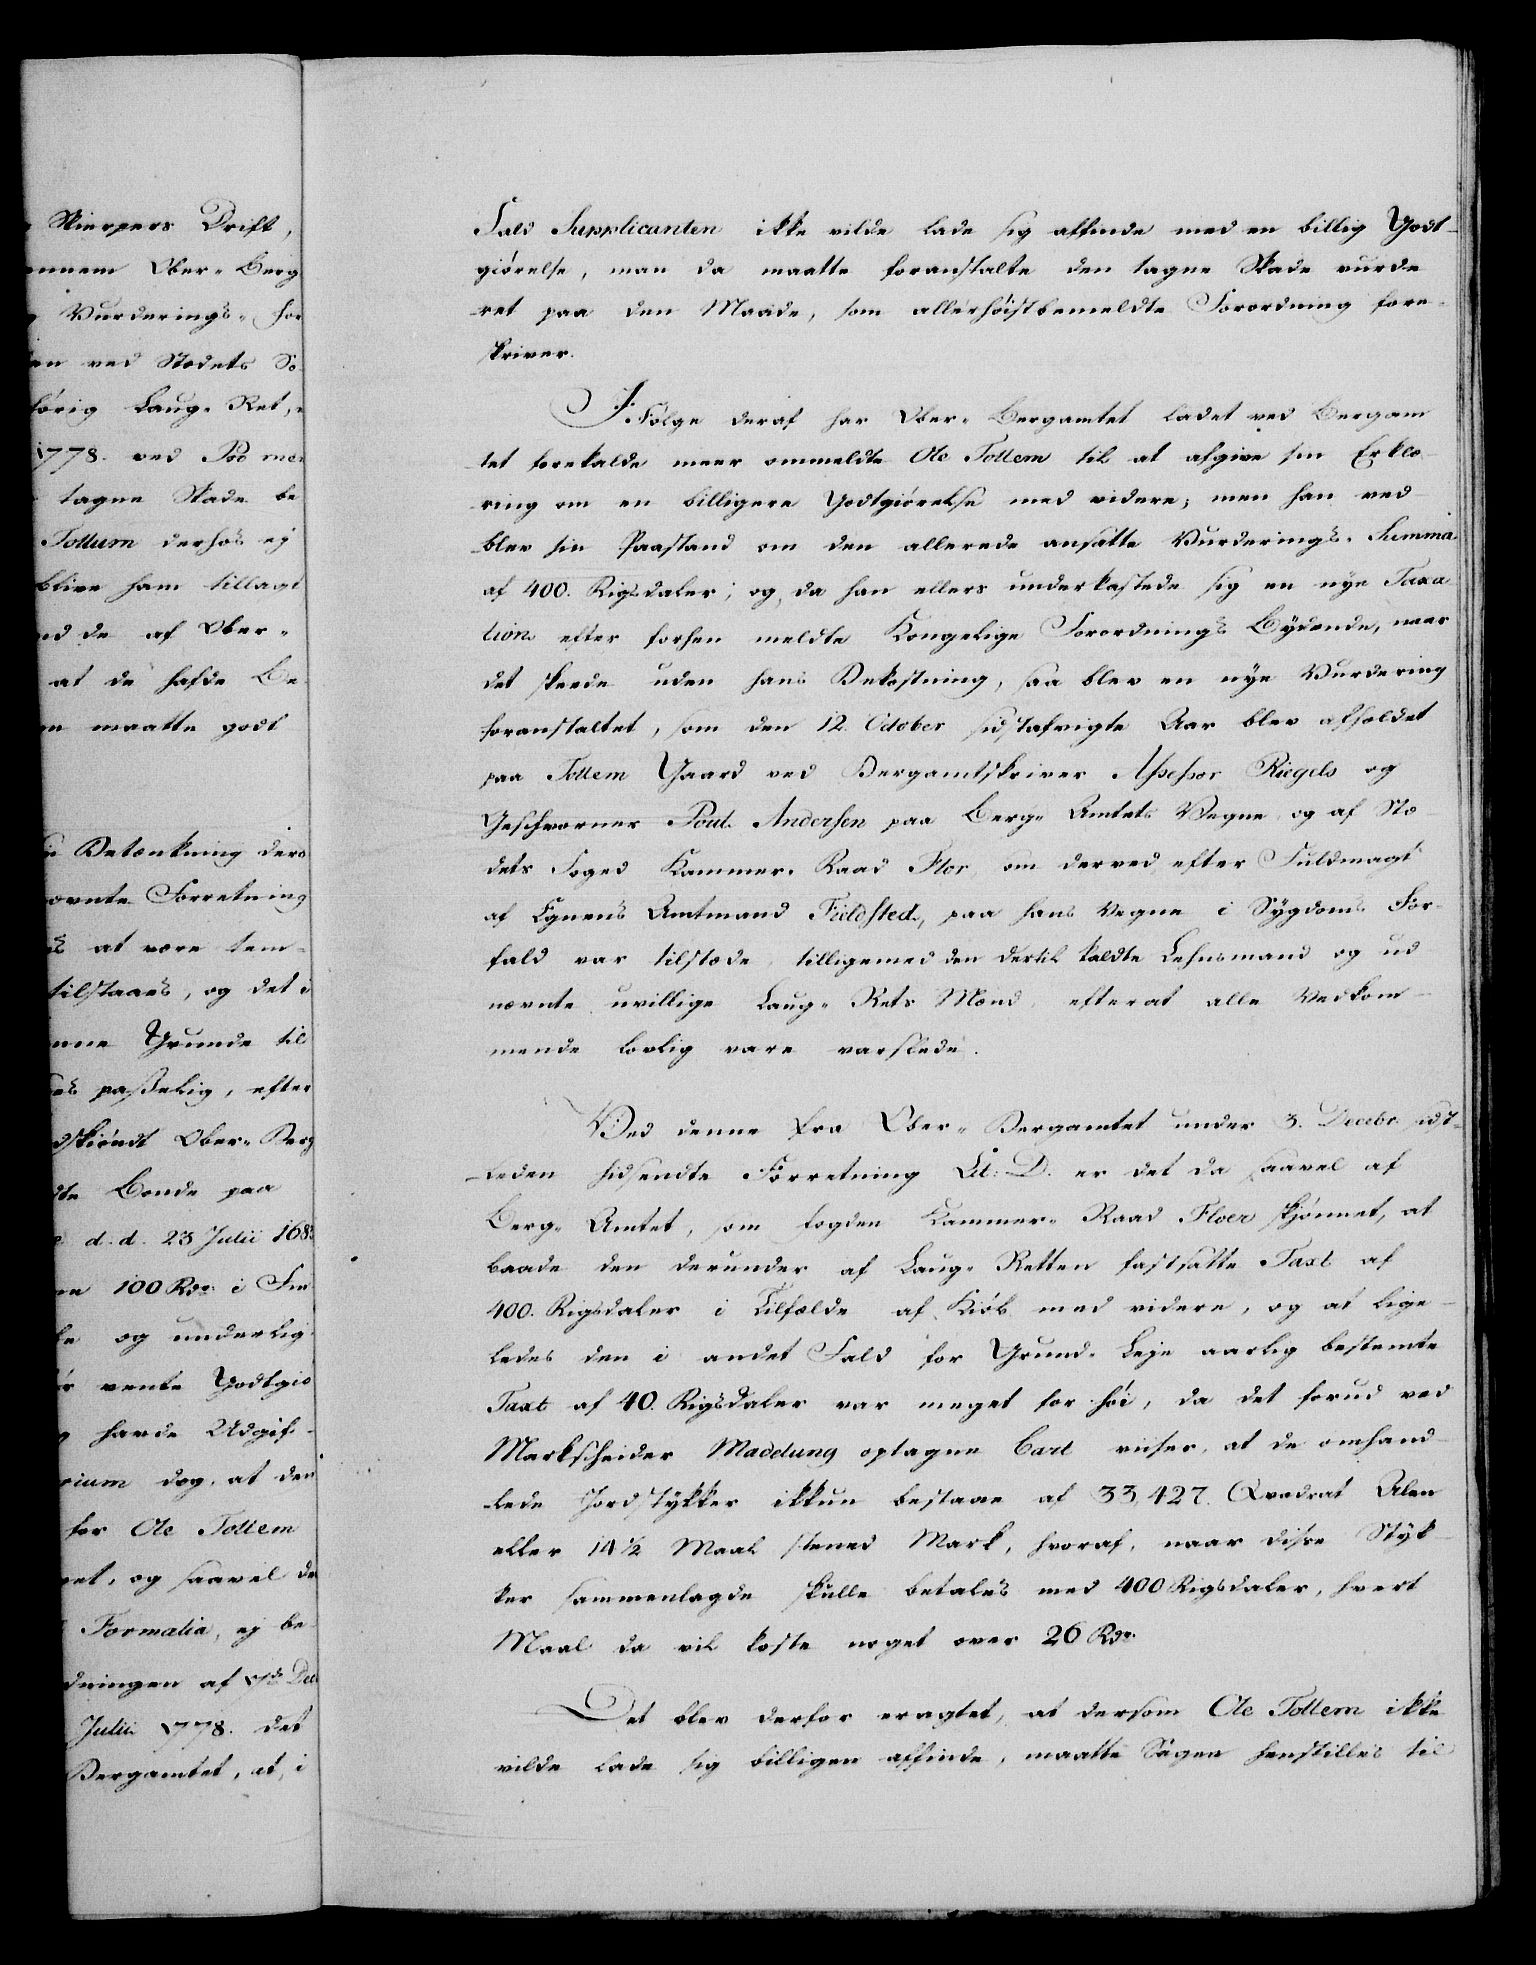 Skierpers Drift,
ennem Ober-Berg
Vurderings-for
en ved Stedets So
hörig Laug-Ret,
1778. ved Pod mer
tagne Skade be
Tollum derhos ej
blive ham tillagt
ed de af Ober-
at de hafde Be-
maatte godt
Betænkning dero
ævnte Forretning
at være tem-
tilstaaes, og det i
Grunde til
paßelig, efter
dskiöndt Ober-Berg
dte Bonde paa
d. d. 23 Julii 168
100 Rdr i
og underlig
vente Godtgiö
havde Udgif-
rium dog, at den
for Ole Tollem
et, og saavel
Formalia, ej be
dningen af 7de Dec
Julii 1778. det
Bergamtet, at, i
Fald Supplicanten ikke vilde lade sig affinde med en billig Godt-
giörelse, man da maatte foranstalte den tagne Skade vurde
ret paa den Maade, som allerhöistbemeldte Forordning fore-
skriver.
I Fölge deraf har Ober-Bergamtet ladet ved Bergam
tet forekalde meer ommeldte Ole Tollem til at afgive sin Erklæ-
ring om en billigere Godtgiörelse med videre, men han ved-
blev sin Paastand om den allerede ansatte Vurderings-Summa
af 400. Rigsdaler; og, da han ellers underkastede sig en nye Taxa
tion efter forhen meldte Kongelige Forordnings Bÿdende, naar
det skeede uden hans Bekostning, saa blev en nye Vurdering
foranstaltet, som den 12. October sidstafvigte Aar blev afholdet
paa Tollem Gaard ved Bergamtskriver Assessor Riegels og
Geschworner Poul Andersen paa Berg-Amtets Vegne og af Stæ-
dets Foged Kammer-Raad Flor, om derved efter Fuldmagt
af Egnens Amtmand Fieldsted, paa hans Vegne i Sÿgdoms For-
fald var tilstæde, tilligemed den dertil kaldte Lehnsmand og ud
nævnte uvillige Laug-Rets Mænd, efterat alle Vedkom-
mende lovlig vare varslede.
Ved denne fra Ober-Bergamtet under 3. Decebr. sidst-
leden hidsendte Forretning Lit: D. er det da saavel af
Berg-Amtet, som fogden Kammer-Raad Floer skjönnet, at
baade den derunder af Laug-Retten fastsatte Taxt af
400. Rigsdaler i Tilfælde af Kiöb med videre, og at lige-
ledes den i andet Fald for Grund-Leje aarlig bestemte
Taxt af 40. Rigsdaler var meget for höi, da det forud ved
Markscheider Madelung optagne Cart viiser, at de omhand-
lede Jordstÿkker ikkun bestaae af 33,427. Qvadrat Alen
eller 14½ Maal stened Mark, hvoraf, naar disse Stÿk-
ker sammenlagde skulle betales med 400 Rigsdaler, hvert
Maal da vil koste noget over 26 Rdr
Det blev derfor eragtet, at dersom Ole Tollem ikke
vilde lade sig billigen affinde, maatte Sagen henstilles til